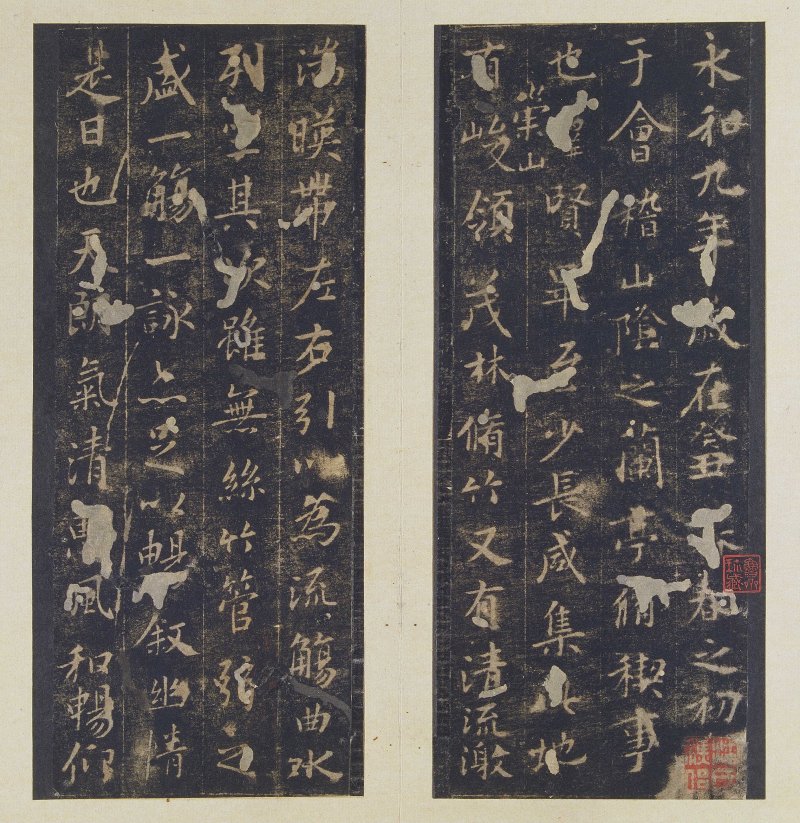 永和九年歲在癸丑春之初
于會稽山陰之蘭亭脩稧事
也群賢畢至少長咸集此地
有崇山峻領茂林脩竹又有清流激
湍暎帶左右引以為流觴曲水
列坐其次雖無絲竹管弦之
盛一觴一詠亦足以暢敘幽情
是日也天朗氣清惠風和暢仰